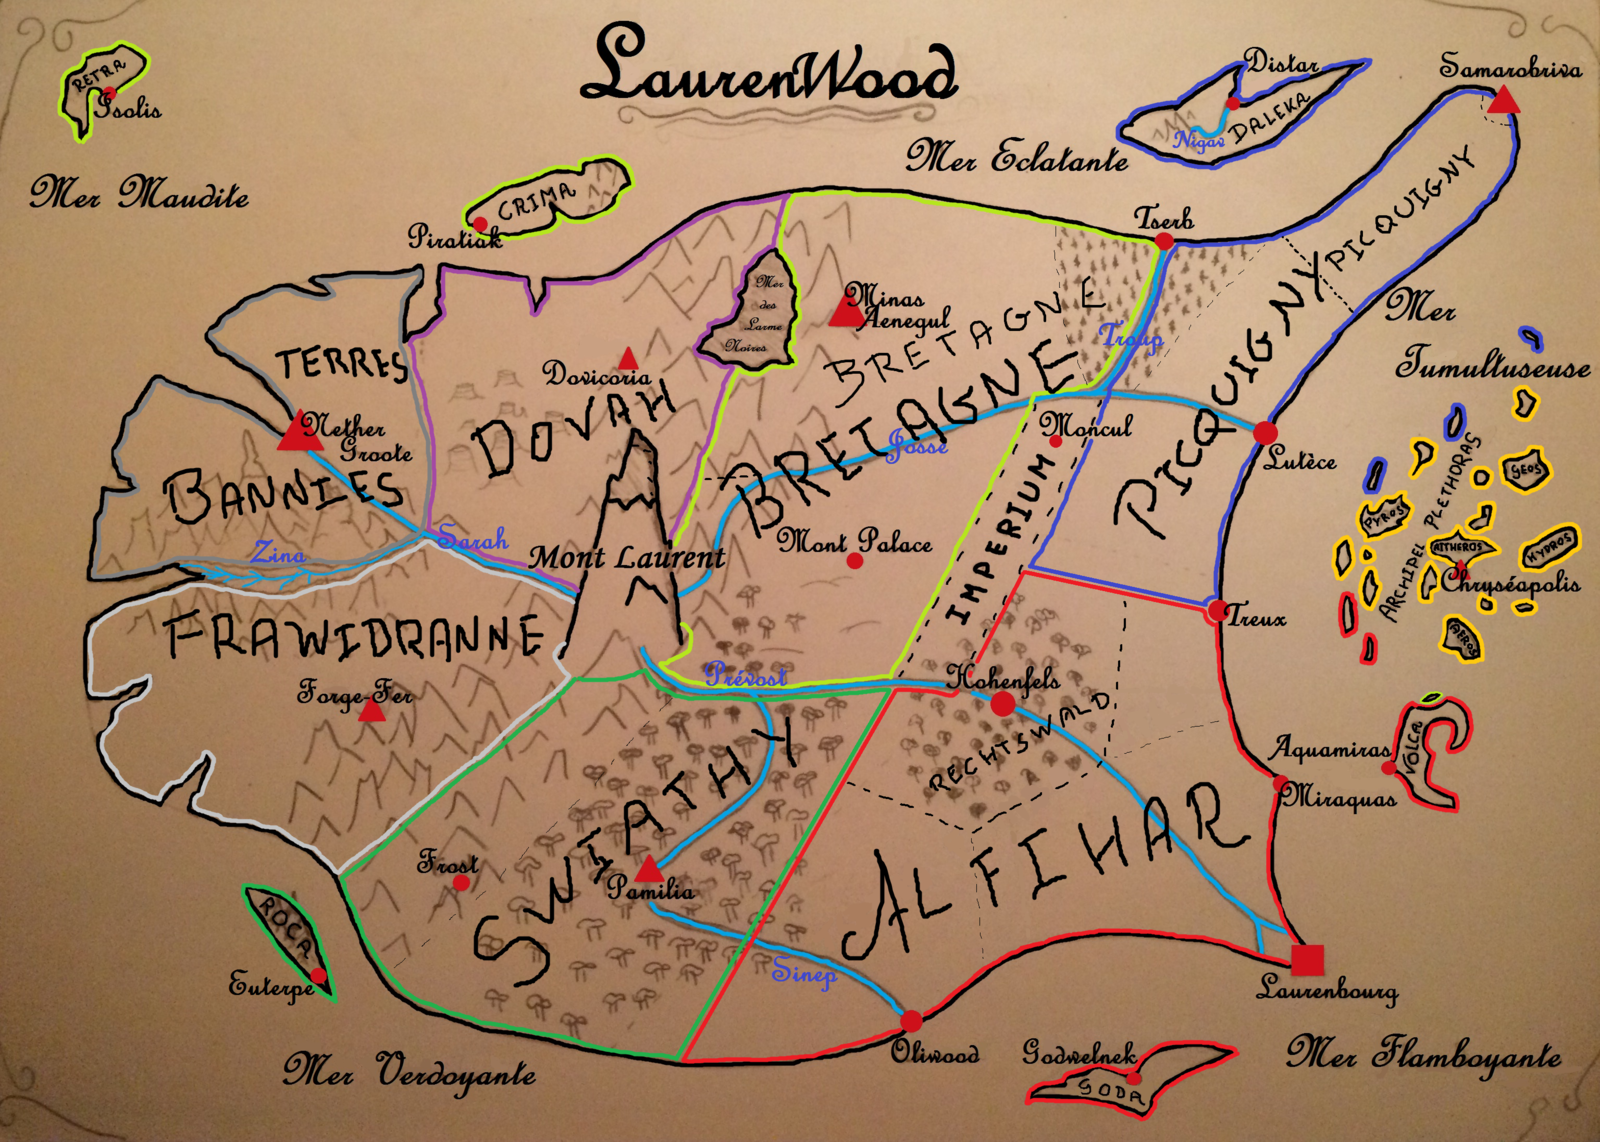 LaurenWood
RETRA
Isolis
Mer Maudite
CRIMA
Piratiak
Mer Eclatante
Distar
DALEKA
Nigav
Samarobriva
PICQUIGNY
Tserb
Troup
PICQUIGNY
Mer
Tumultuseuse
TERRES
BANNIES
Nether
Groote
Zina
Sarah
Dovicoria
DOVAH
Mer
des
Larme
Noires
Minas
Aenegul
BRETAGNE
BRETAGNE
Josse
Moncul
IMPERIUM
PICQUIGNY
Lutèce
Treux
Mont Laurent
Mont Palace
ARCHIPEL PLETHORAS
GEOS
PYROS
AITHEROS
HYDROS
Chryséapolis
AEROS
FRAWIDRANNE
Forge-Fer
Prévost
Hohenfels
RECHTSWALD
Aquamiras
VOLCA
Miraquas
SWIATHY
Frost
Pamilia
ALFIHAR
ROCA
Euterpe
Sinep
Oliwood
Laurenbourg
Mer Verdoyante
Godwelnek
GODA
Mer Flamboyante